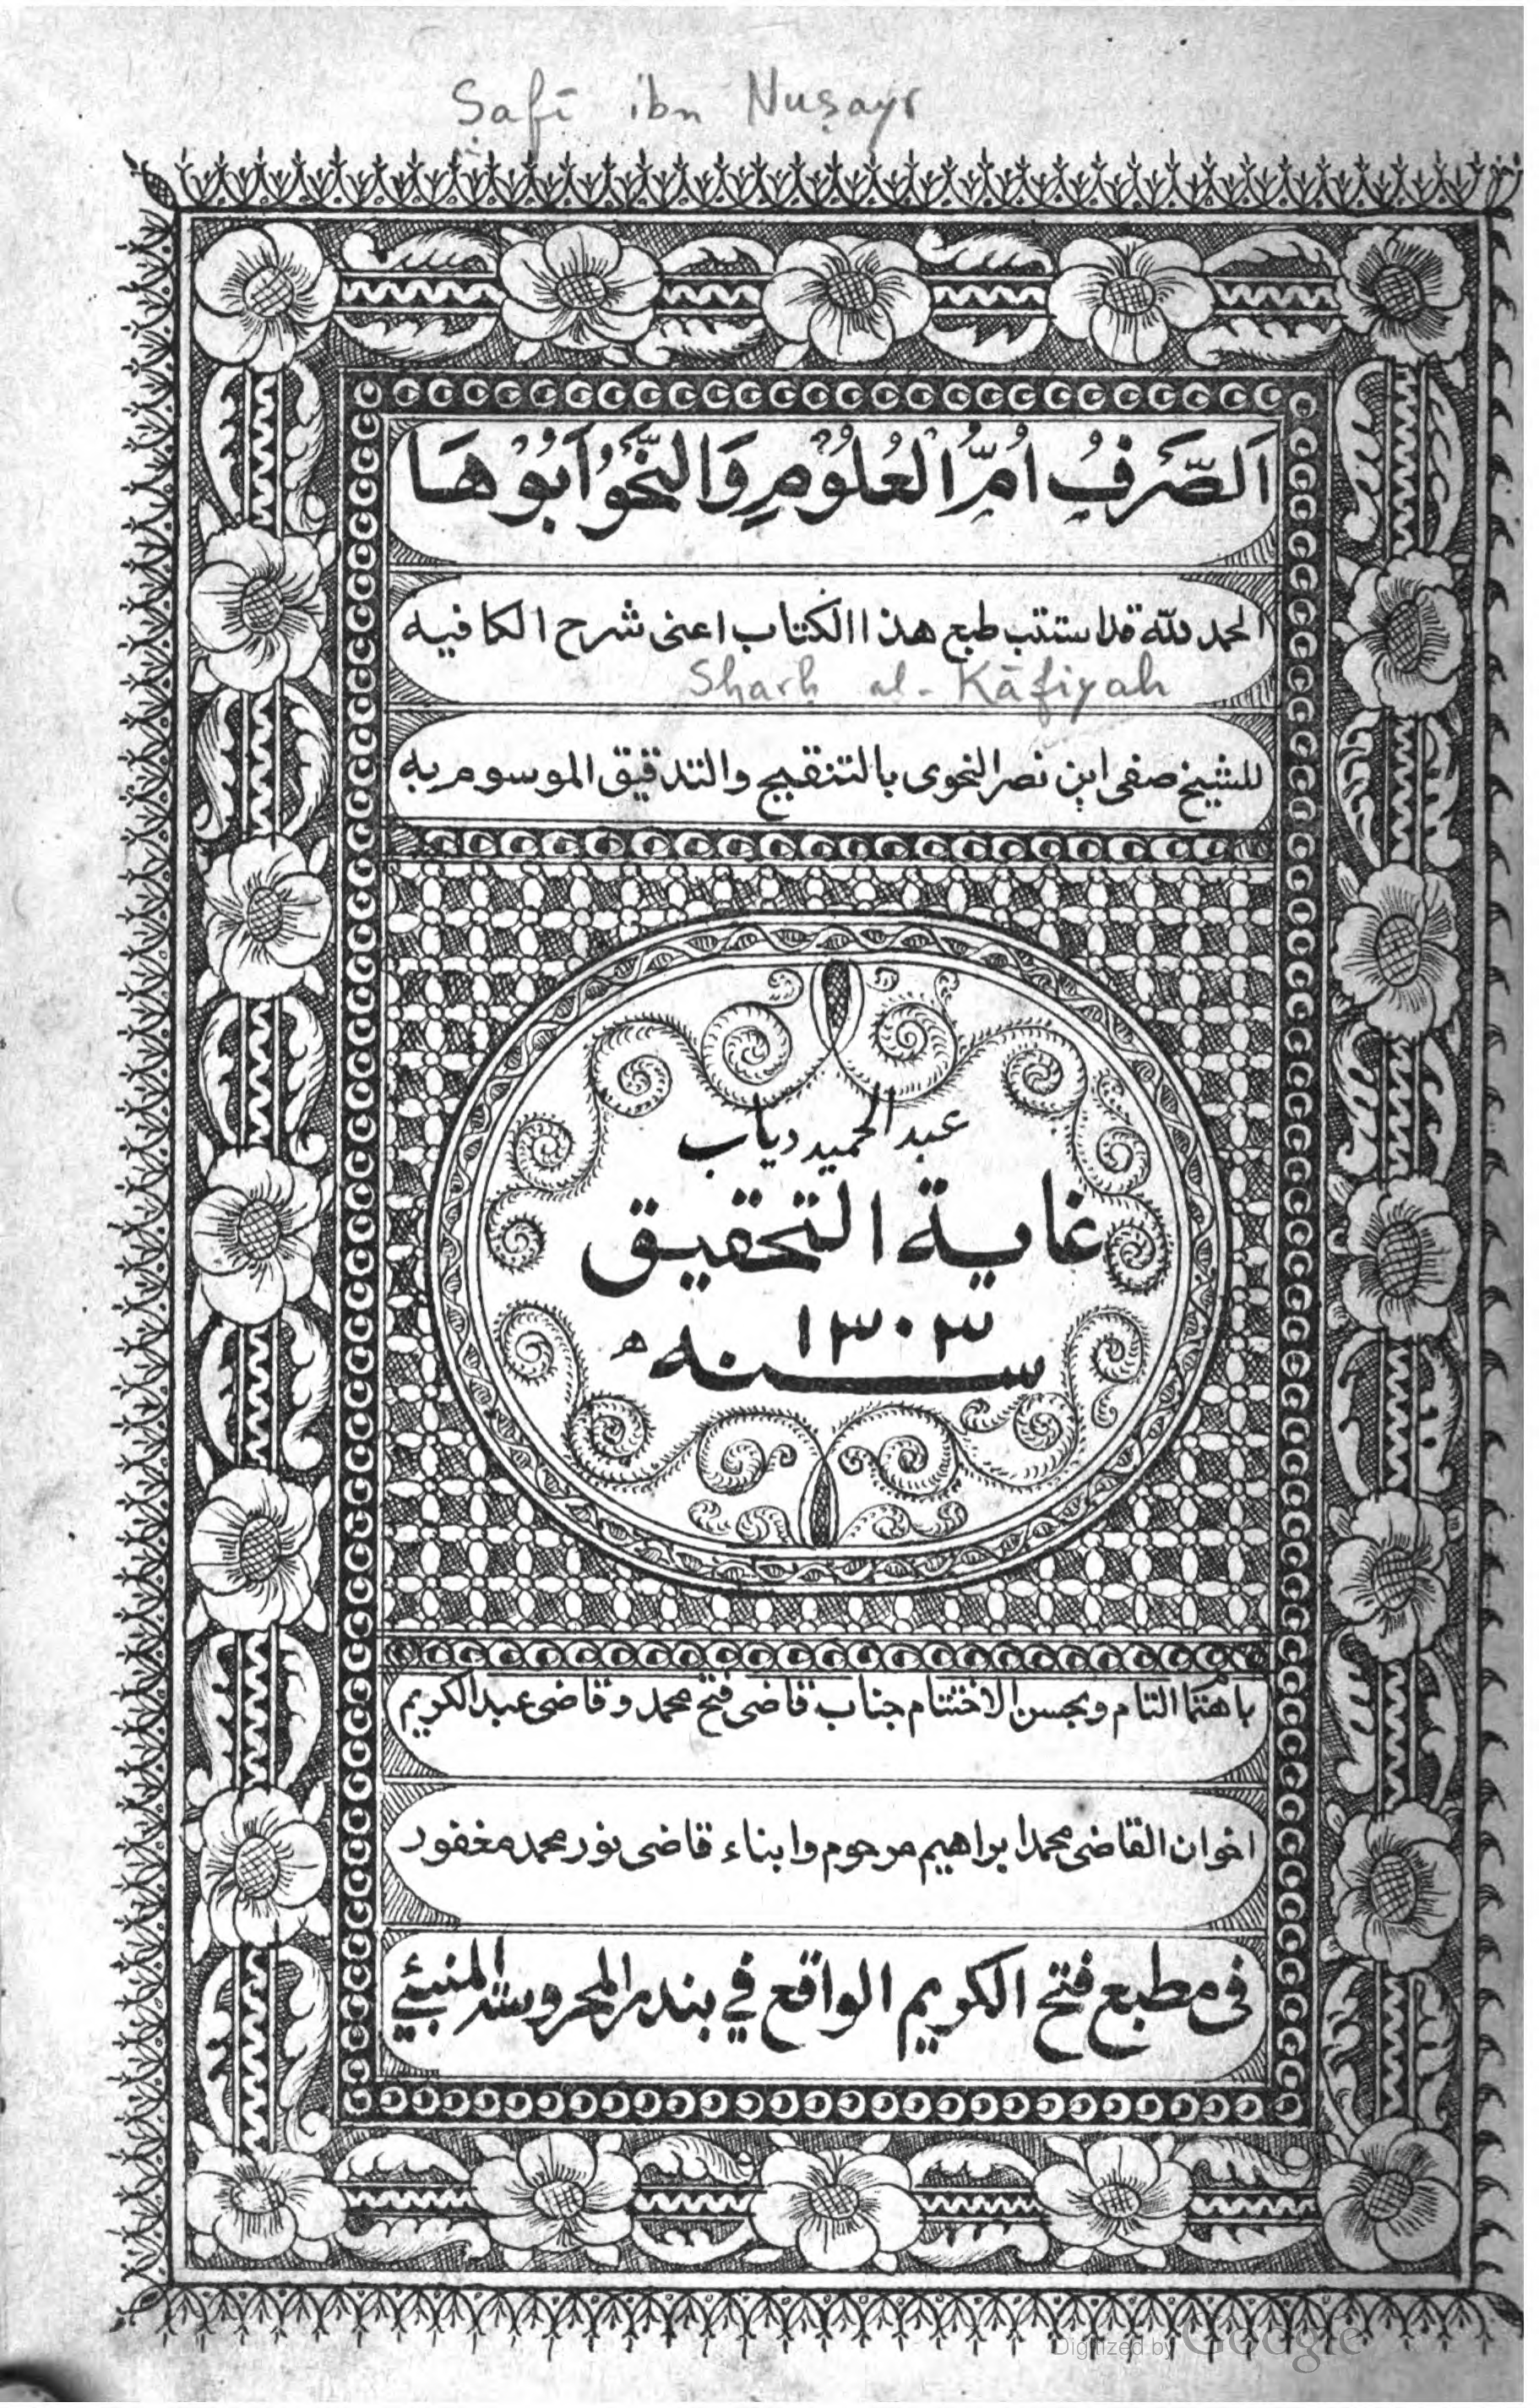 Ṣafī ibn Nuṣayr
اَلصَّرْفُ اُمُّ الْعُلُوْمِ وَالنَّحْوُ اَبُوْهَا
الحمد لله قد استتب طبع هذا الكتاب اعنى شرح الكافيه
Sharḥ al-Kāfiyah
للشيخ صفى ابن نصر النحوى بالتنقيح والتدقيق الموسوم به
عبد الحميد دياب
غاية التحقيق
سنه ١٣٠٣ ھ
باهتما التام وبحسن الاختتام جناب قاضى فتح محمد وقاضى عبد الكريم
اخوان القاضى محمد ابراهيم مرحوم وابناء قاضى نور محمد مغفور
فى مطبع فتح الكريم الواقع في بندر المحروسة المنبئي
Digitized by Google